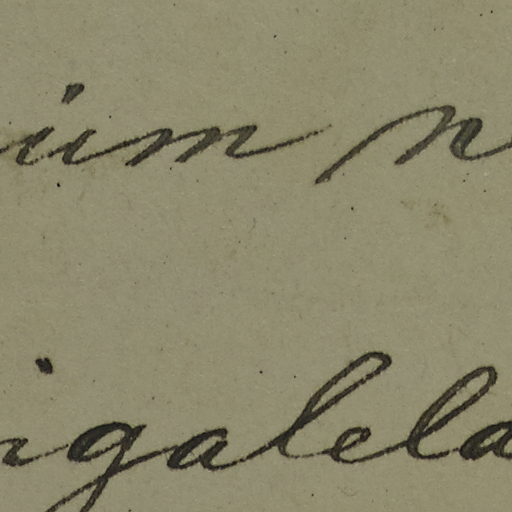 ium n
igalela